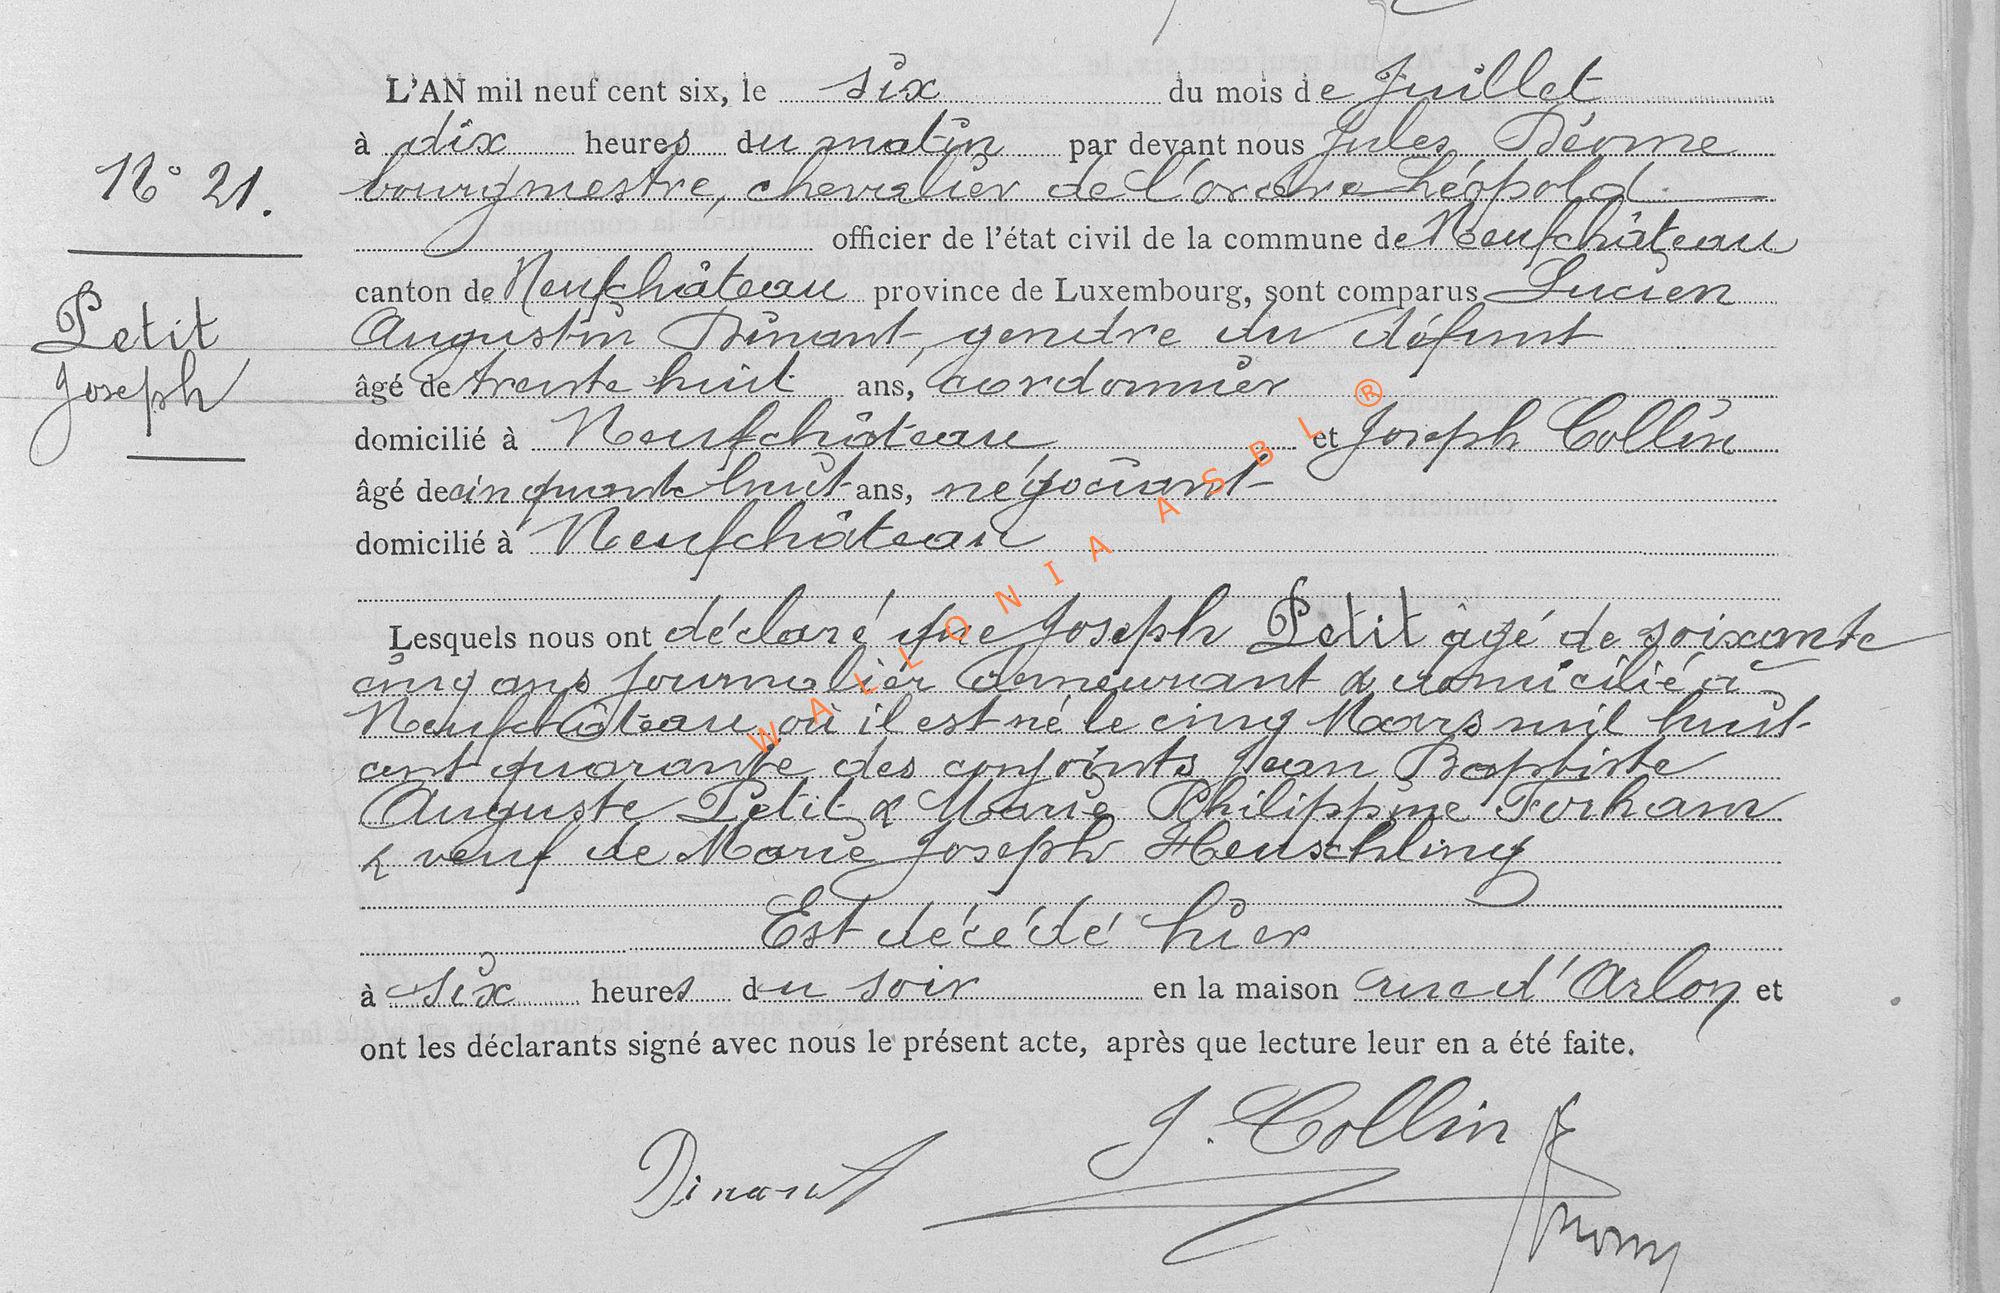 L'AN mil neuf cent six, le six du mois de Juillet
à dix heures du matin par devant nous Jules
bourgmestre, chevalier de l'ordre Léopold
officier de l'état civil de la commune de Neufchâteau
canton de Neufchâteau province de Luxembourg, sont comparus Lucien
Augustin Dinant, gendre du défunt
âgé de trente huit ans, cordonnier
domicilié à Neufchâteau et Joseph Collin
âgé de cinquante huit ans, négociant
domicilié à Neufchâteau
Lesquels nous ont déclaré que Joseph Petit âgé de soixante
cinq ans journalier demeurant & domicilié à
Neufchâteau où il est né le cinq Mars mil huit
cent quarante des conjoints Jean Baptiste
Auguste Petit & Marie Philippine
& veuf de Marie Joseph Heuschling
Est décédé hier
à six heures du soir en la maison rue d'Arlon et
ont les déclarants signé avec nous le présent acte, après que lecture leur en a été faite.
J. Collin
Dinant
N° 21.
Petit
Joseph
WALLONIA ASBL ®